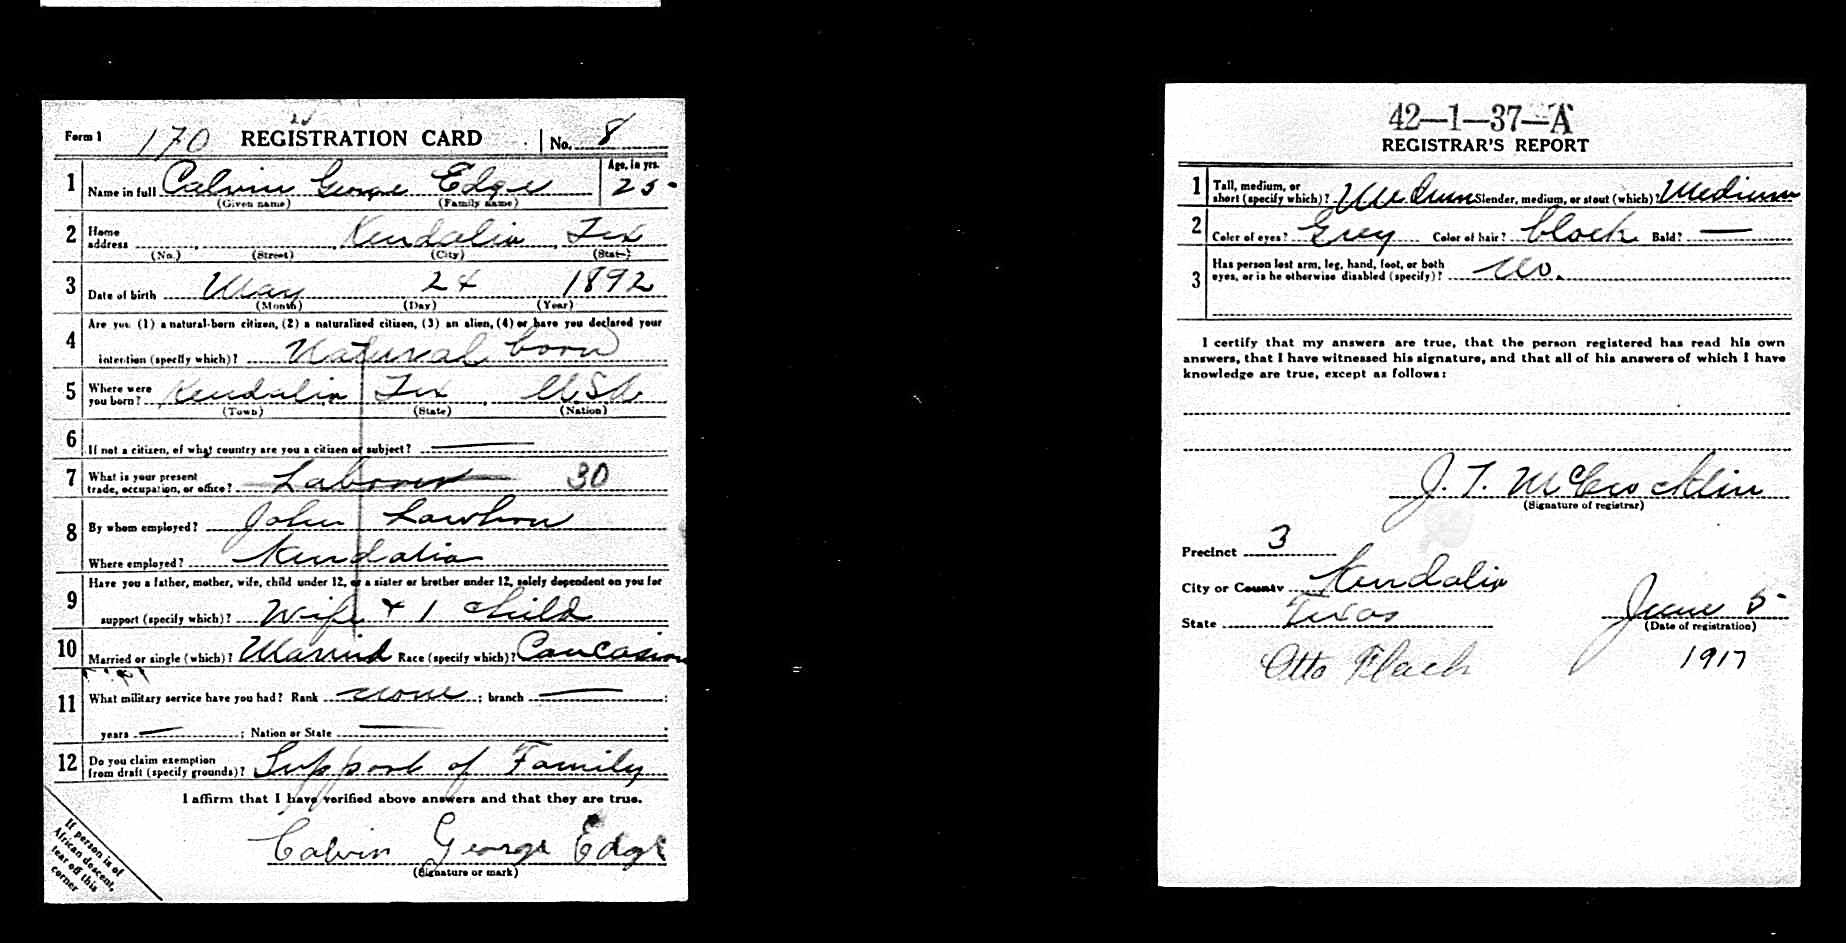 Form 1 170 REGISTRATION CARD No. 8
1 Name in full Calvin George Edge Age, in yrs. 25
(Given name) (Family name)
2 Home address Kendalia Tex
(No.) (Street) (City) (State)
3 Date of birth May 24 1892
(Month) (Day) (Year)
4 Are you (1) a natural-born citizen, (2) a naturalized citizen, (3) an alien, (4) or have you declared your
intention (specify which)? Natural born
5 Where were you born? Kendalia Tex U.S.A.
(Town) (State) (Nation)
6 If not a citizen, of what country are you a citizen or subject? —
7 What is your present trade, occupation, or office? Laborer 30
8 By whom employed? John Lawhon
Where employed? Kendalia
9 Have you a father, mother, wife, child under 12, or a sister or brother under 12, solely dependent on you for
support (specify which)? Wife + 1 child
10 Married or single (which)? Married Race (specify which)? Caucasion
11 What military service have you had? Rank none ; branch — ;
years — ; Nation or State —
12 Do you claim exemption from draft (specify grounds)? Support of Family
I affirm that I have verified above answers and that they are true.
Calvin George Edge
(Signature or mark)
If person is of
African descent,
tear off this
corner
42—1—37—A
REGISTRAR'S REPORT
1 Tall, medium, or short (specify which)? Medium Slender, medium, or stout (which)? Medium
2 Color of eyes? Grey Color of hair? black Bald? —
3 Has person lost arm, leg, hand, foot, or both eyes, or is he otherwise disabled (specify)? No.
I certify that my answers are true, that the person registered has read his own
answers, that I have witnessed his signature, and that all of his answers of which I have
knowledge are true, except as follows:
J. T. McCrocklin
(Signature of registrar)
Precinct 3
City or County Kendalia
State Texas June 5-
(Date of registration)
Otto Flach 1917